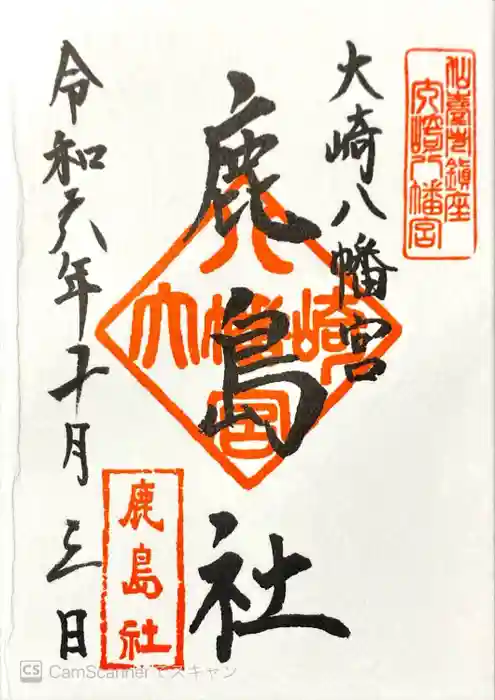 仙臺市鎮座
大崎八幡宮
大崎八幡宮
鹿島社
八
大幡崎
宮
鹿島社
令和六年十月三日
CS CamScannerでスキャン